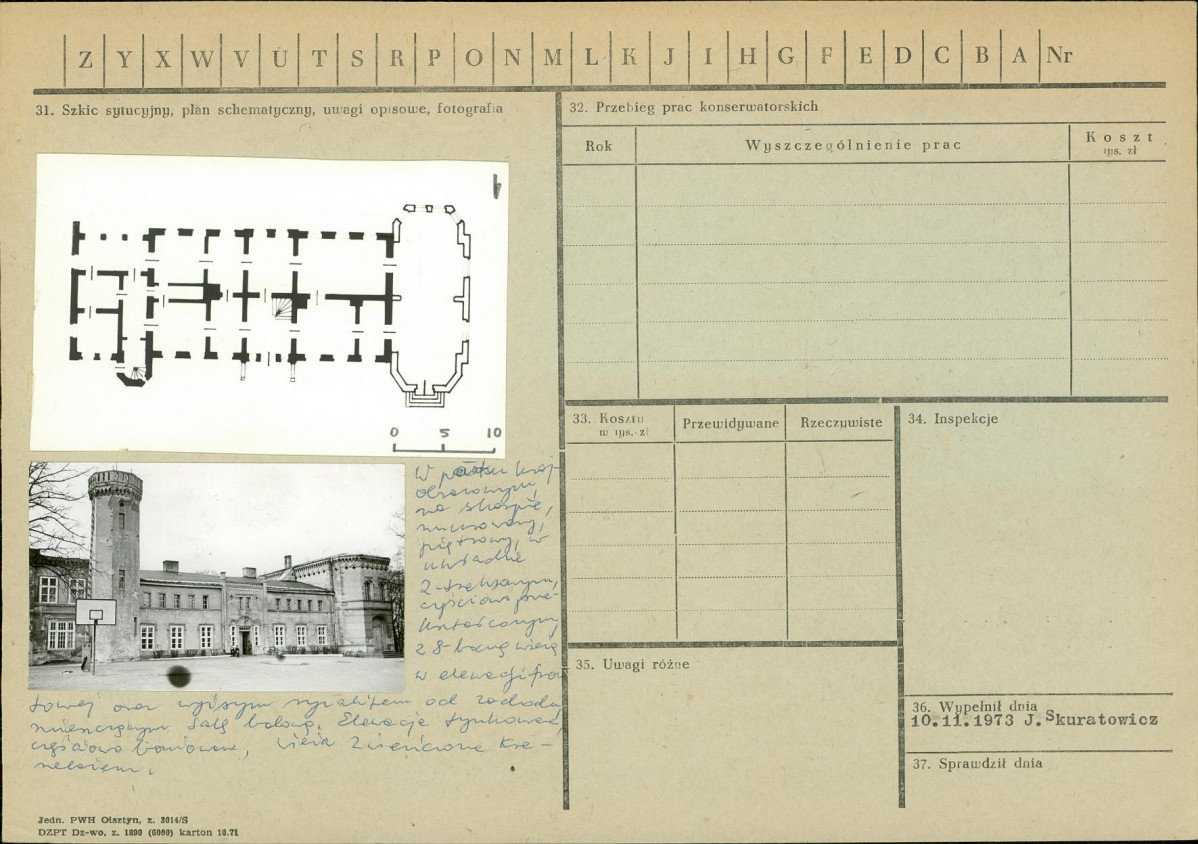 Z Y X W V U T S R P O N M L K J I H G F E D C B A Nr
31. Szkic sytucyjny, plan schematyczny, uwagi opisowe, fotografia
0 5 10
W parku kraj-
obrazowym,
na skarpie,
murowany,
piętrowy, w
układzie
2-traktowym,
częściowo prze-
kształconym,
z 8-boczną wieżą
w elewacji fron
towej oraz wyższym ryzalitem od zachodu
mieszczącym salę balową. Elewacje tynkowane,
częściowo boniowane, wieża zwieńczona kre-
nelażem.
Jedn. PWH Olsztyn, z. 3014/S
DZPT Dz-wo, z. 1890 (6000) karton 10.71
32. Przebieg prac konserwatorskich
Rok Wyszczególnienie prac Koszt
tys. zł
33. Koszty
w tys. zł
Przewidywane Rzeczywiste
34. Inspekcje
35. Uwagi różne
36. Wypełnił dnia
10.11.1973 J.Skuratowicz
37. Sprawdził dnia